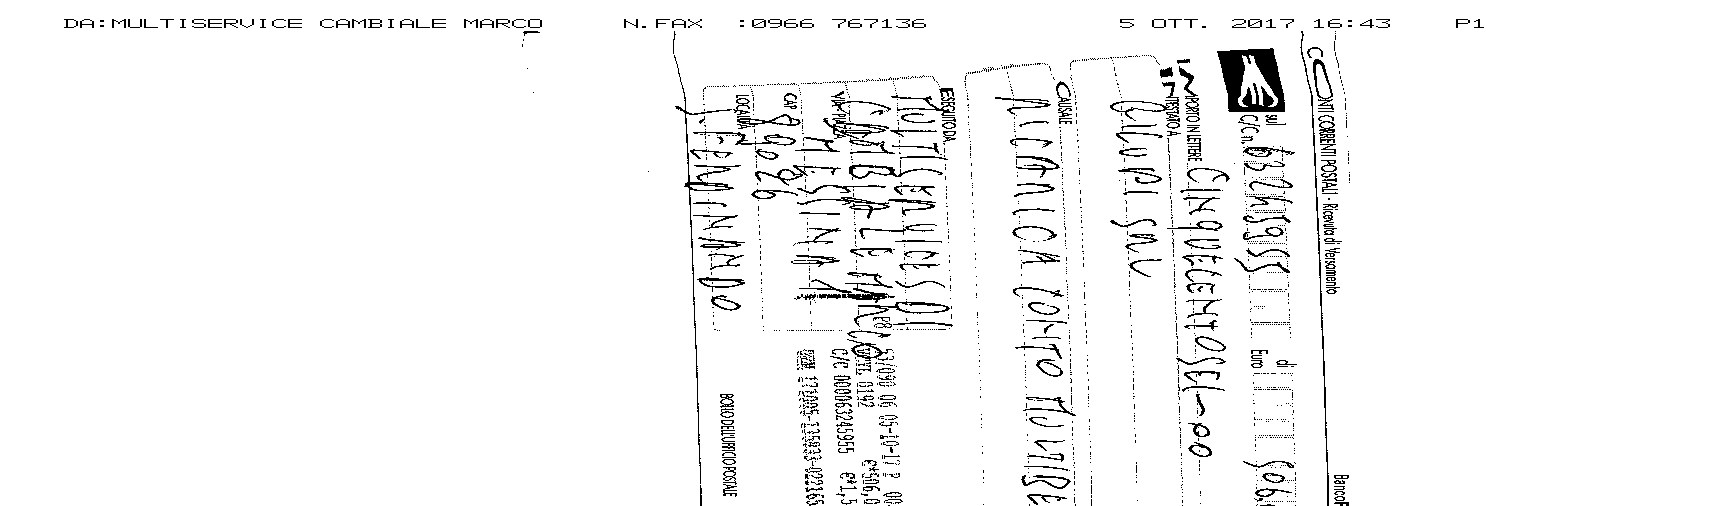 DA:MULTISERVICE CAMBIALE MARCO N.FAX :0966 767136 5 OTT. 2017 16:43 P1
CONTI CORRENTI POSTALI - Ricevuta di Versamento BancoP
sul C/C n. 63245955 di Euro 506,
IMPORTO IN LETTERE CINQUECENTOSEI~00
INTESTATO A
CAUSALE RICARICA CONTO
ESEGUITO DA
MULTISERVICES DI
CAMBIALE MARCO
VIA - PIAZZA MESSINA 1
CAP 89026
LOCALITÀ S. FERDINANDO
53/090 06 05-10-17 P 00
0192 €*506,0
C/C 000063245955 €*1,5
BOLLO DELL'UFFICIO POSTALE